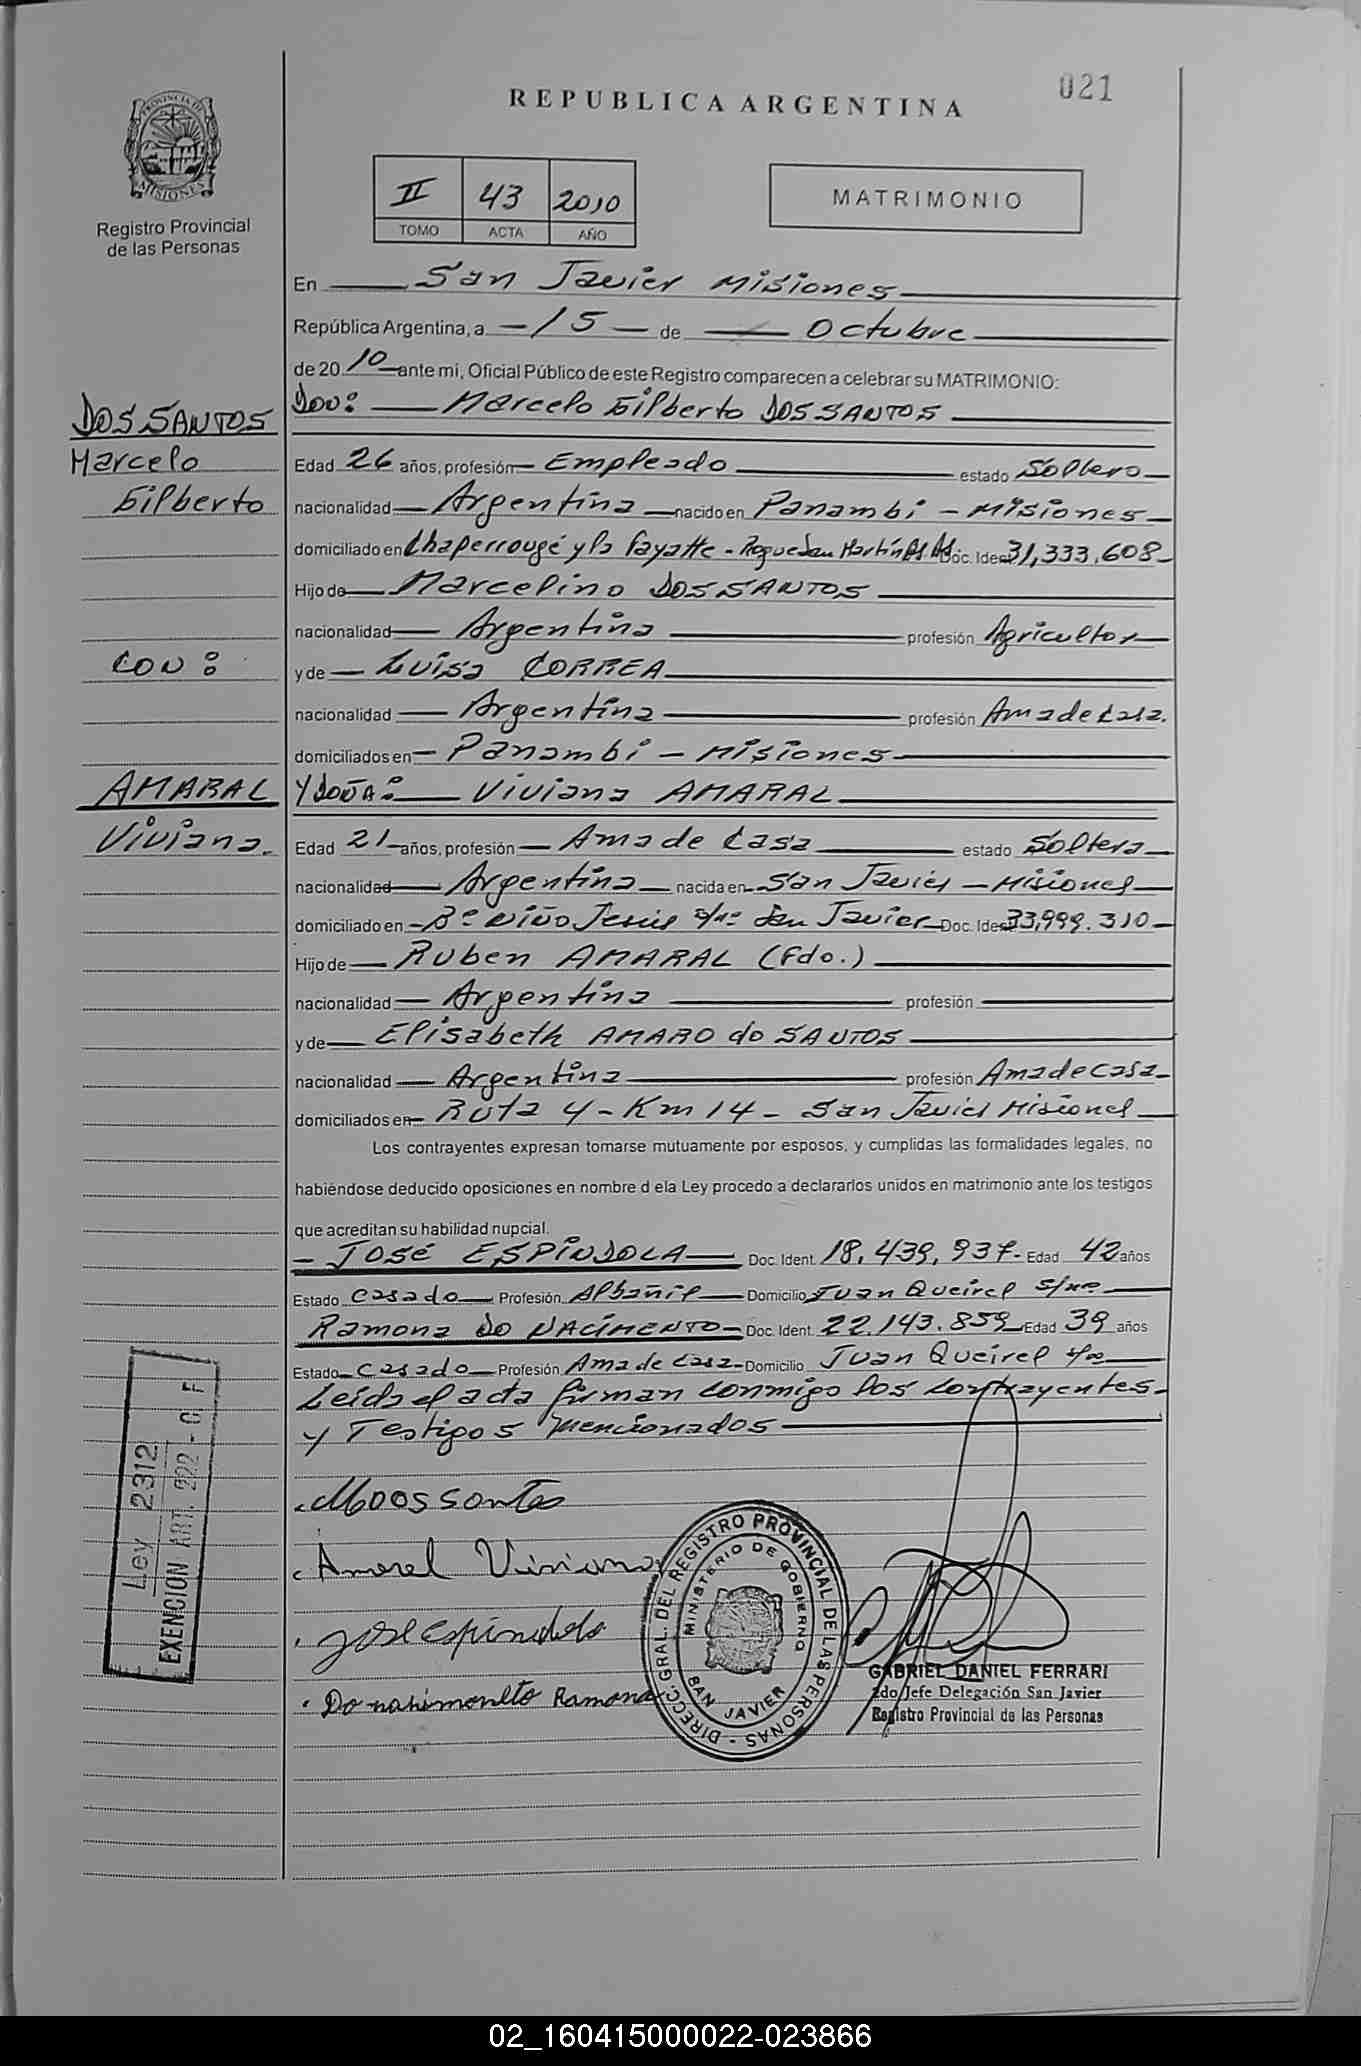 021
REPUBLICA ARGENTINA
PROVINCIA DE MISIONES
Registro Provincial
de las Personas
II 43 2010
TOMO ACTA AÑO
MATRIMONIO
En San Javier Misiones
República Argentina, a 15 de Octubre
de 20 10 ante mi, Oficial Público de este Registro comparecen a celebrar su MATRIMONIO:
DOS SANTOS
Marcelo
Gilberto
CON:
AMARAL
Viviana.
DON: Marcelo Gilberto DOS SANTOS
Edad 26 años, profesión Empleado estado Soltero
nacionalidad Argentina nacido en Panambi - Misiones
domiciliado en Chaperrougé y la Fayatte - Roque San Martín Doc. Ident 31,333,608
Hijo de Marcelino DOS SANTOS
nacionalidad Argentina profesión Agricultor
y de Luisa CORREA
nacionalidad Argentina profesión Ama de Casa.
domiciliados en Panambi - Misiones
Y DOÑA: Viviana AMARAL
Edad 21 años, profesión Ama de Casa estado Soltera
nacionalidad Argentina nacida en San Javier - Misiones
domiciliado en Bº NIÑO Jesús s/nº San Javier Doc. Ident 33,999.310
Hijo de Ruben AMARAL (Fdo.)
nacionalidad Argentina profesión
y de Elisabeth AMARO do SANTOS
nacionalidad Argentina profesión Ama de Casa
domiciliados en Ruta 4 - Km 14 - San Javier Misiones
Los contrayentes expresan tomarse mutuamente por esposos, y cumplidas las formalidades legales, no
habiéndose deducido oposiciones en nombre d ela Ley procedo a declararlos unidos en matrimonio ante los testigos
que acreditan su habilidad nupcial.
JOSÉ ESPÍNDOLA Doc. Ident. 18,439,937 Edad 42 años
Estado Casado Profesión Albañil Domicilio Juan Queirel s/nº
Ramona DO NACIMENTO Doc. Ident. 22.143.859 Edad 39 años
Estado Casado Profesión Ama de Casa Domicilio Juan Queirel s/nº
Leida el acta firman conmigo los contrayentes
y Testigos mencionados
Ley 2312
EXENCION ART. 222 - C. F.
Amaral Viviana
Jose espindola
Do nasimento Ramona
DIRECC. GRAL. DEL REGISTRO PROVINCIAL DE LAS PERSONAS
MINISTERIO DE GOBIERNO
SAN JAVIER
GABRIEL DANIEL FERRARI
2do Jefe Delegación San Javier
Registro Provincial de las Personas
02_160415000022-023866